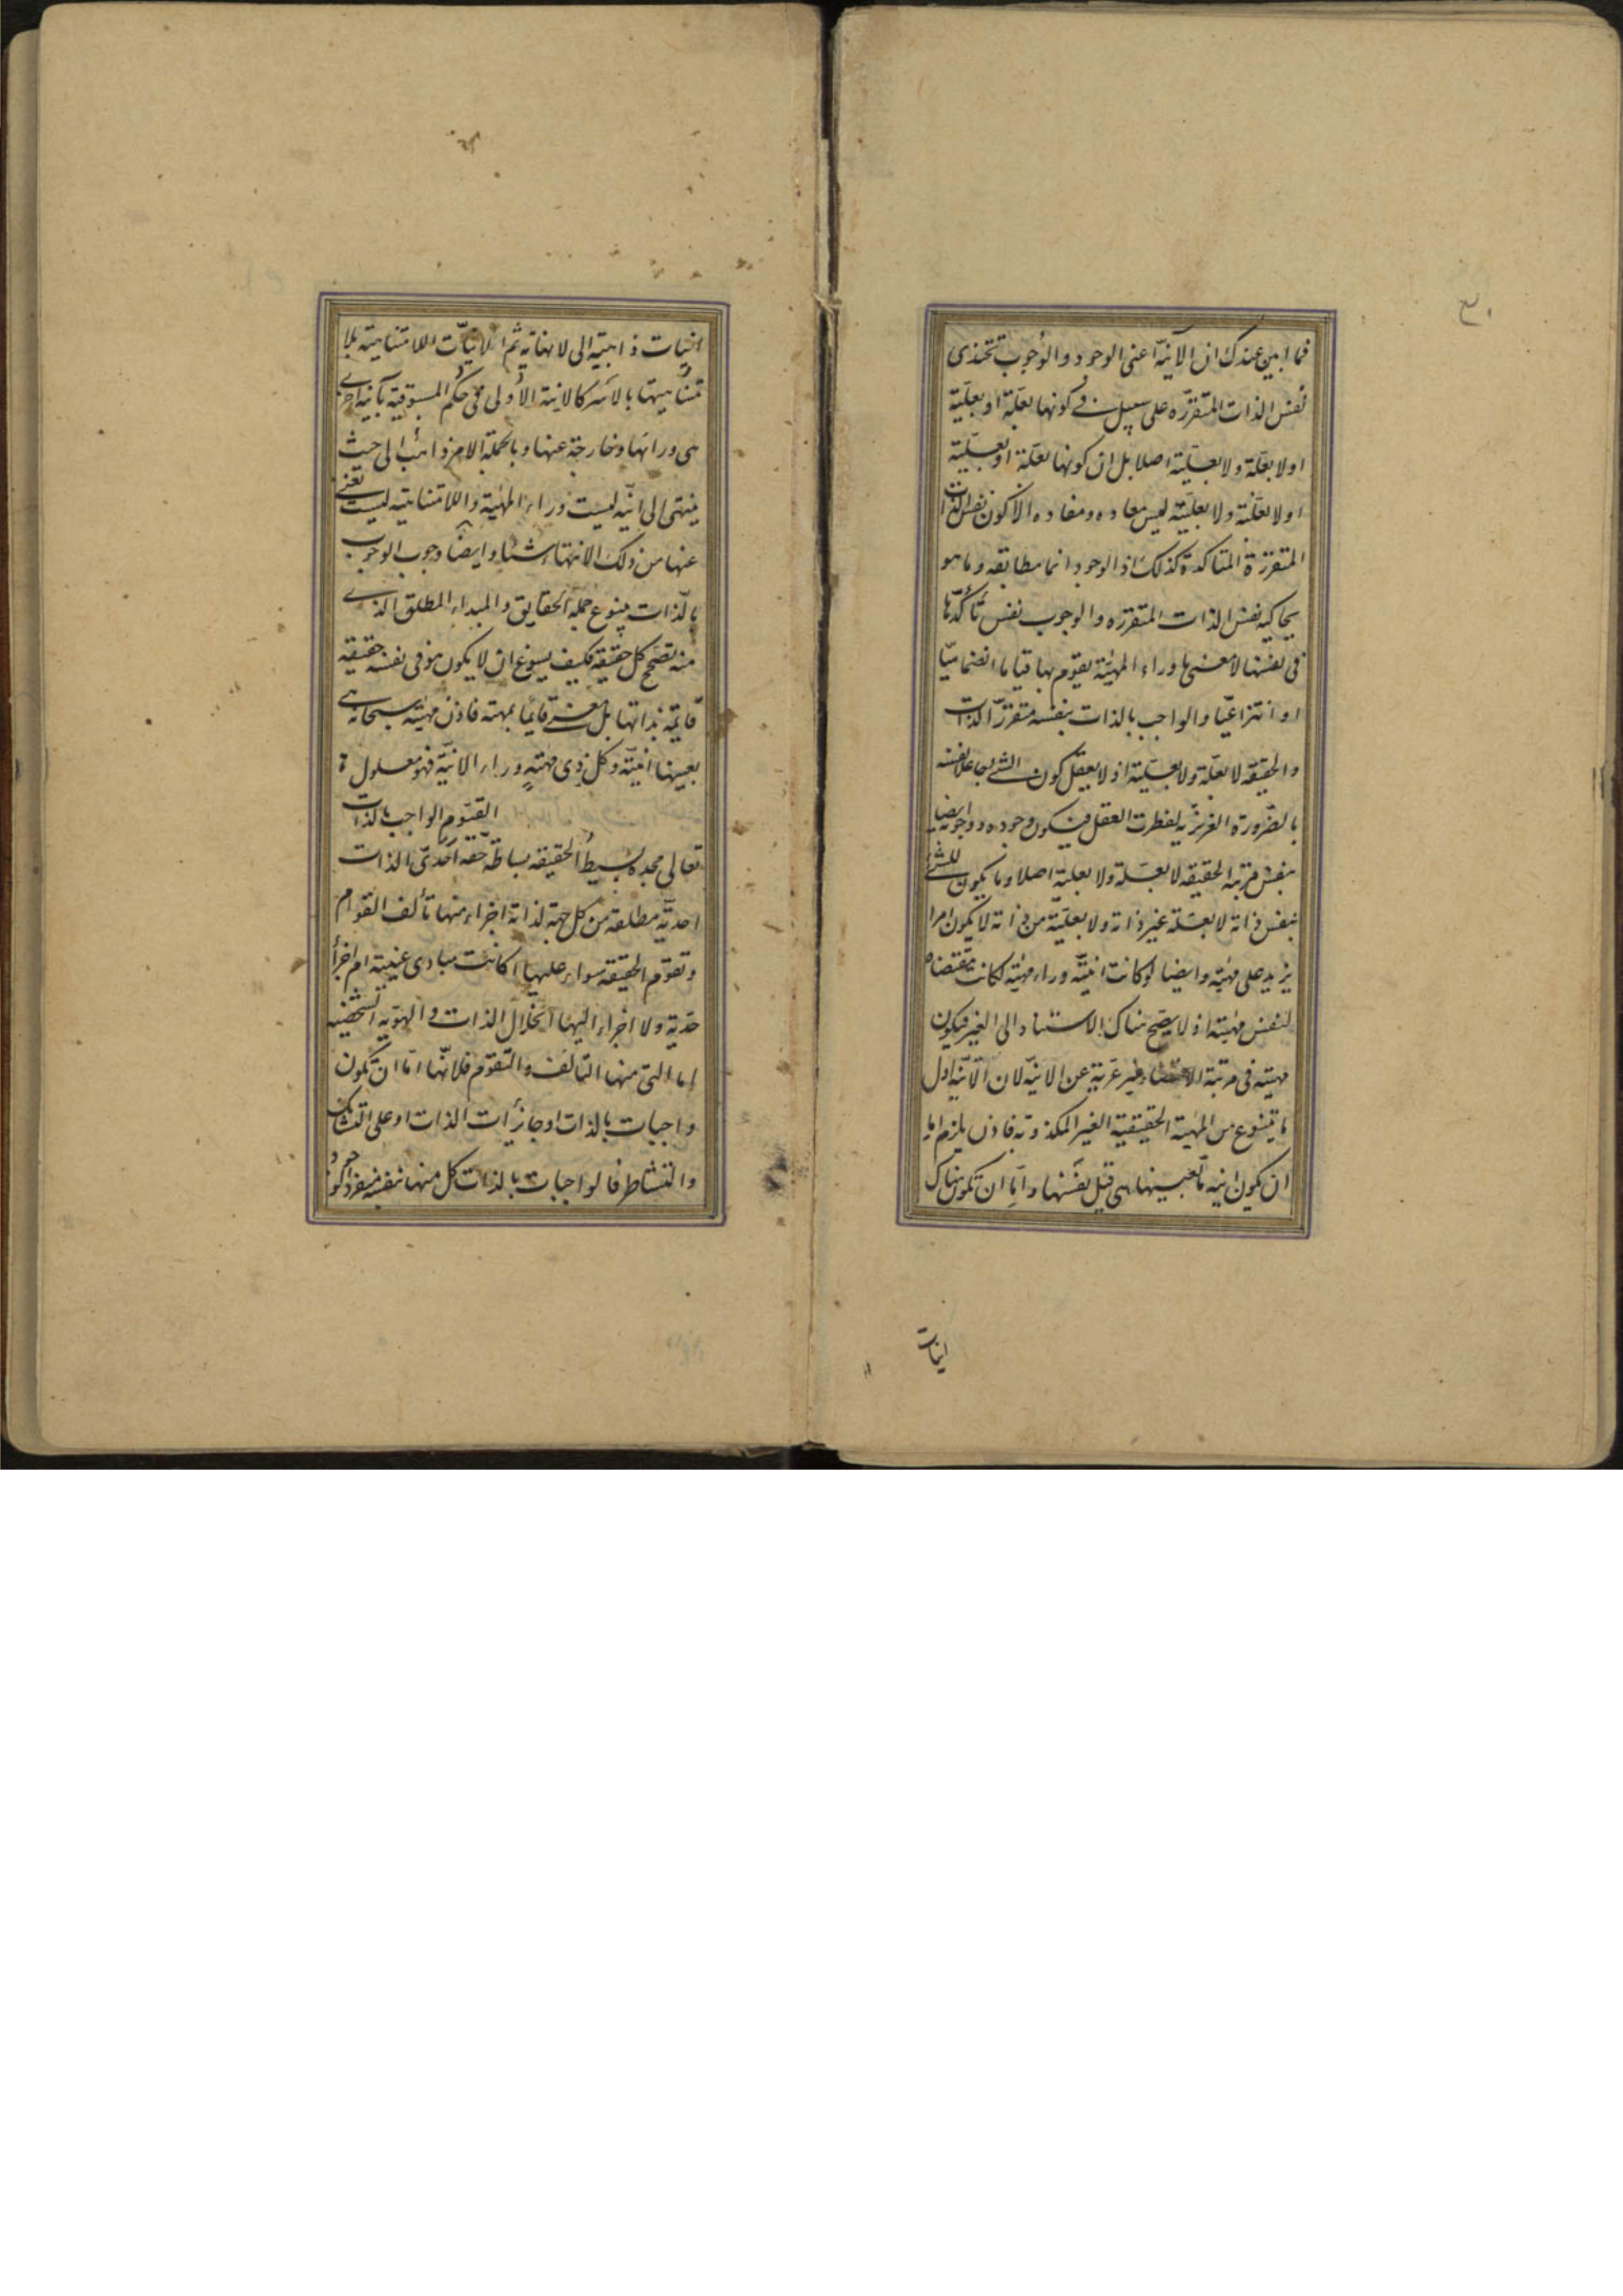 فما ابين عندك ان الانيّة اعنى الوجود والوجوب تحتذى
نفس الذات المتقرّره على سبيل فى كونها بعلّة او بعلّية
او لا بعلّة ولا بعلّية اصلا بل ان كونها بعلّة او بعلّية
او لا بعلّة ولا بعلّية ليس معاده ومفاده الا كون نفس الذات
المتقررة المتأكدة كذلك اذ الوجود انما مطابقه وما هو
يحاكيه نفس الذات المتقرره والوجوب نفس تأكّدها
فى نفسها لا معنى ما وراء المهيّة يقوم بها قياما انضماميّا
او انتزاعيّا والواجب بالذات بنفسه متقرّر الذات
والحقيقه لا بعلّة ولا بعلّية اذ لا يعقل كون الشئ جاعلا نفسه
بالضّرورة الغريزيه لفطرت العقل فيكون وجوده ووجوبه ايضا
بنفس مرتبة الحقيقه لا بعلّة ولا بعلية اصلا وما يكون للشئ
بنفس ذاته لا بعلّة غير ذاته ولا بعليّة من ذاته لا يكون امرا
يزيد على مهيّته وايضا لو كانت انيّته وراء مهيّته لكانت مقتضاه
لنفس مهيّته اذ لا يصح هناك الاستناد الى الغير فيكون
مهيته فى مرتبة الاقتضاء غير عريّة عن الانيّة لان الانيّة اول
ما ينتزع من المهيّة الحقيقية الغير المكذوبة فاذن يلزم اما
ان يكون انية ما بعينها هى قبل نفسها واما ان تكون هناك
انيات
انيّات ذاهبة الى لا نهاية ثم الانيّات اللامتناهية بلا
تناهيتها بالاسر كالانية الاولى فى حكم المسبوقية بآنية اخرى
هى وراءها وخارجة عنها وبالجملة الامر ذاهب الى حيث
ينتهى الى انيّة ليست وراء المهيّة واللامتناهية ليست تغنى
عنها من ذلك الانتهاء شيئا وايضا وجوب الوجوب
بالذات ينبوع جملة الحقايق والمبداء المطلق الذى
منه تصحّ كل حقيقة فكيف يسوغ ان لا يكون هو فى نفسه حقيقه
قايمة بذاتها بل معنى قايما بمهيّة فاذن مهيّته سبحانه هى
بعينها انيّته وكل ذى مهيّةٍ وراء الانيّة فهو معلول
القيّوم الواجب بالذات
تعالى مجده بسيط الحقيقه بساطة حقّه احدىّ الذات
احديّة مطلقة من كل جهة لذاته اجزاء منها تألف القوام
وتقوّم الحقيقه سواء عليها اكانت مبادى عينية ام اجزأ
حدّية ولا اجزاء اليها انحلال الذات والهويّه الشخصيّه
اما التى منها التألف والتقوّم فلانّها امّا ان تكون
واجبات بالذات او جائزات الذات او على التشابك
والتشاطر فالواجبات بالذات كل منها بنفسه منفرد